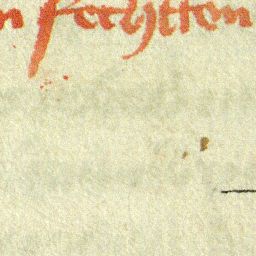 n fechtten